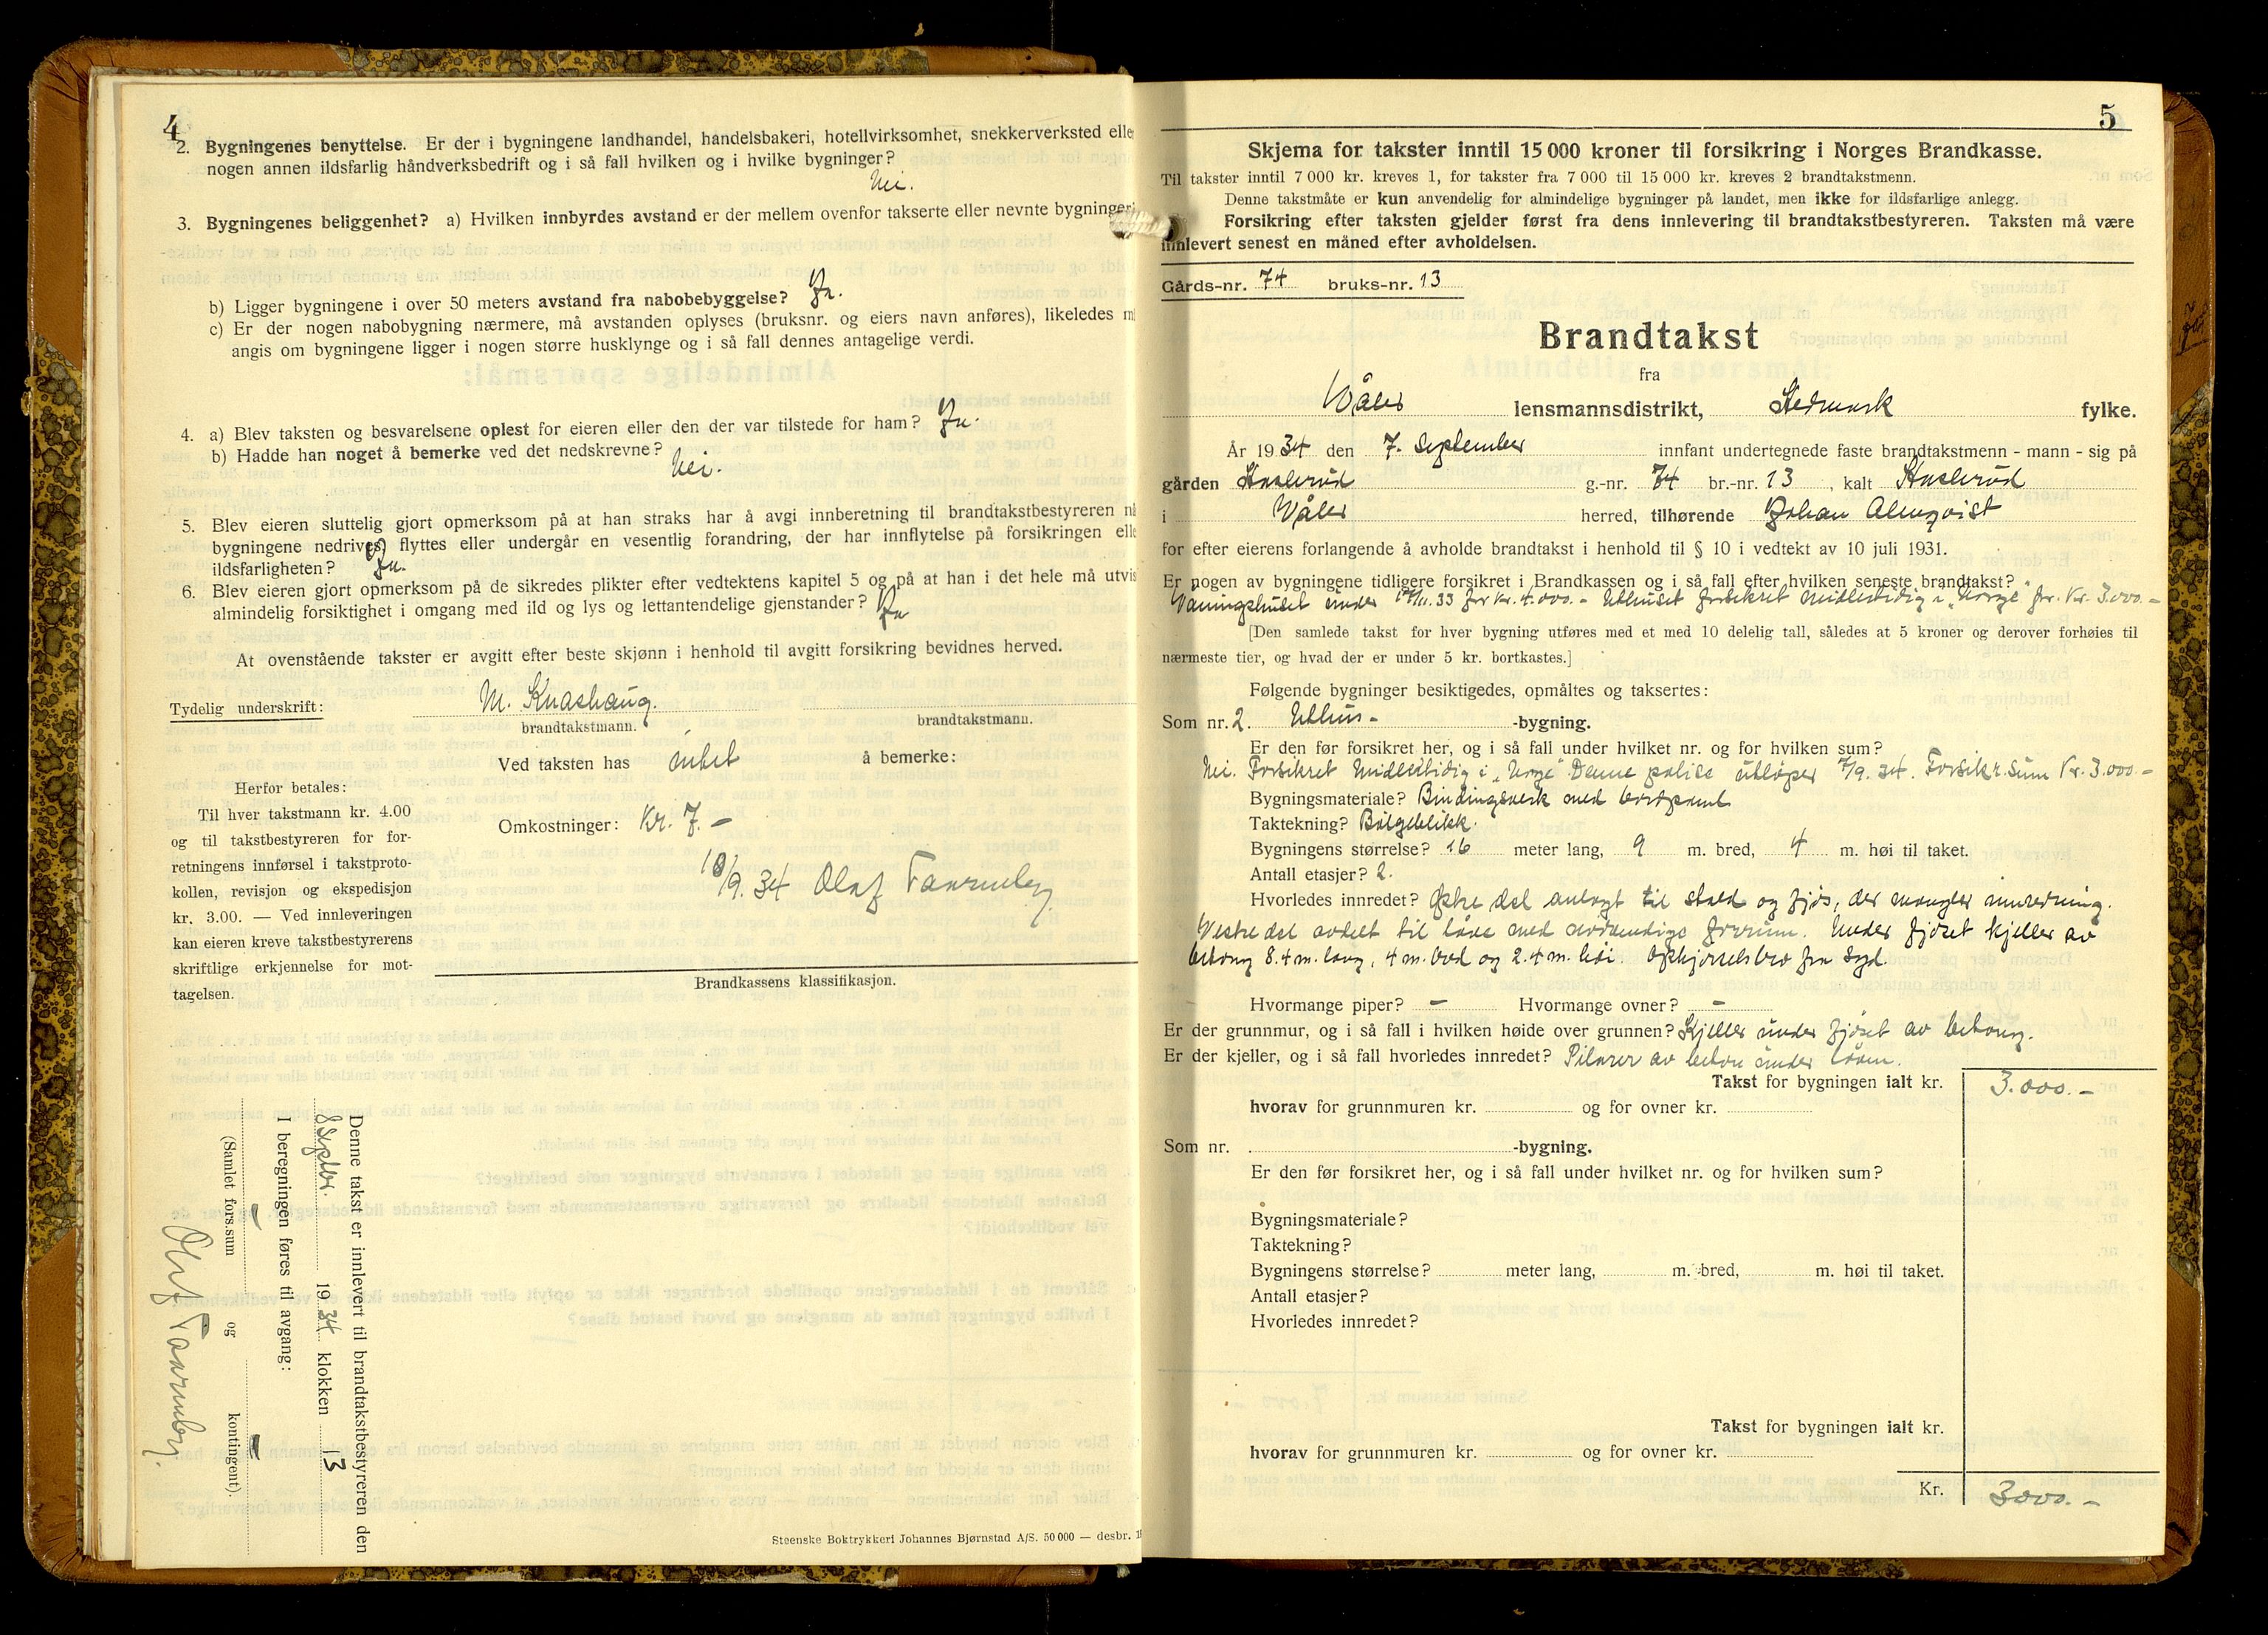 4
2. Bygningenes benyttelse. Er der i bygningene landhandel, handelsbakeri, hotellvirksomhet, snekkerverksted elle
nogen annen ildsfarlig håndverksbedrift og i så fall hvilken og i hvilke bygninger?
Nei.
3. Bygningenes beliggenhet? a) Hvilken innbyrdes avstand er der mellem ovenfor takserte eller nevnte bygninger
b) Ligger bygningene i over 50 meters avstand fra nabobebyggelse? Ja.
c) Er der nogen nabobygning nærmere, må avstanden oplyses (bruksnr. og eiers navn anføres), likeledes m
angis om bygningene ligger i nogen større husklynge og i så fall dennes antagelige verdi.
4. a) Blev taksten og besvarelsene oplest for eieren eller den der var tilstede for ham? Ja.
b) Hadde han noget å bemerke ved det nedskrevne? Nei.
5. Blev eieren sluttelig gjort opmerksom på at han straks har å avgi innberetning til brandtakstbestyreren nå
bygningene nedrives, flyttes eller undergår en vesentlig forandring, der har innflytelse på forsikringen elle
ildsfarligheten? Ja.
6. Blev eieren gjort opmerksom på de sikredes plikter efter vedtektens kapitel 5 og på at han i det hele må utvis
almindelig forsiktighet i omgang med ild og lys og lettantendelige gjenstander? Ja
At ovenstående takster er avgitt efter beste skjønn i henhold til avgitt forsikring bevidnes herved.
Tydelig underskrift: M. Knashaug.
brandtakstmann. brandtakstmann.
Ved taksten has intet å bemerke:
Herfor betales:
Til hver takstmann kr. 4.00
og til takstbestyreren for for-
retningens innførsel i takstproto-
kollen, revisjon og ekspedisjon
kr. 3.00. — Ved innleveringen
kan eieren kreve takstbestyrerens
skriftlige erkjennelse for mot-
tagelsen.
Omkostninger: Kr. 7.-
10/9.34 Olaf Taarneby
Brandkassens klassifikasjon.
Denne takst er innlevert til brandtakstbestyreren den
8 Septbr. 1934 klokken 13
I beregningen føres til avgang:
(Samlet fors.sum - og kontingent). -
Olaf Taarneby.
Steenske Boktrykkeri Johannes Bjørnstad A/S. 50 000 — desbr. 1
5
Skjema for takster inntil 15 000 kroner til forsikring i Norges Brandkasse.
Til takster inntil 7 000 kr. kreves 1, for takster fra 7 000 til 15 000 kr. kreves 2 brandtakstmenn.
Denne takstmåte er kun anvendelig for almindelige bygninger på landet, men ikke for ildsfarlige anlegg.
Forsikring efter taksten gjelder først fra dens innlevering til brandtakstbestyreren. Taksten må være
innlevert senest en måned efter avholdelsen.
Gårds-nr. 74 bruks-nr. 13
Brandtakst
fra
Våler lensmannsdistrikt, Hedmark fylke.
År 1934 den 7. September innfant undertegnede faste brandtakstmenn - mann - sig på
gården Haslerud g.-nr. 74 br.-nr. 13, kalt Haslerud
i Våler herred, tilhørende Johan Almqvist
for efter eierens forlangende å avholde brandtakst i henhold til § 10 i vedtekt av 10 juli 1931.
Er nogen av bygningene tidligere forsikret i Brandkassen og i så fall efter hvilken seneste brandtakst?
Våningshuset under 33 for Kr. 4.000.- Uthuset forsikret midlertidig i „Norge" for Kr. 3.000.-
[Den samlede takst for hver bygning utføres med et med 10 delelig tall, således at 5 kroner og derover forhøies til
nærmeste tier, og hvad der er under 5 kr. bortkastes.]
Følgende bygninger besiktigedes, opmåltes og taksertes:
Som nr. 2. Uthus- -bygning.
Er den før forsikret her, og i så fall under hvilket nr. og for hvilken sum?
Nei. Forsikret midlertidig i „Norge" Denne polise utløper 7/9.34. Forsikr.sum Kr. 3.000.-
Bygningsmateriale? Bindingsverk med bordpanel
Taktekning? Bølgeblikk.
Bygningens størrelse? 16 meter lang, 9 m. bred, 4 m. høi til taket.
Antall etasjer? 2.
Hvorledes innredet? Østre del anlagt til stald og fjøs, der mangler innredning.
Vestre del avdelt til låve med nødvendige forrum. Under fjøset kjeller av
betong 8.4 m. lang, 4 m. bred og 2.4 m. høi. Opkjørselsbro fra Syd.
Hvormange piper? - Hvormange ovner? -
Er der grunnmur, og i så fall i hvilken høide over grunnen? Kjeller under fjøset av betong.
Er der kjeller, og i så fall hvorledes innredet? Pilarer av beton under låven.
Takst for bygningen ialt kr. 3.000.-
hvorav for grunnmuren kr. og for ovner kr.
Som nr. -bygning.
Er den før forsikret her, og i så fall under hvilket nr. og for hvilken sum?
Bygningsmateriale?
Taktekning?
Bygningens størrelse? meter lang, m. bred, m. høi til taket.
Antall etasjer?
Hvorledes innredet?
Takst for bygningen ialt kr.
hvorav for grunnmuren kr. og for ovner kr.
Kr. 3000.-